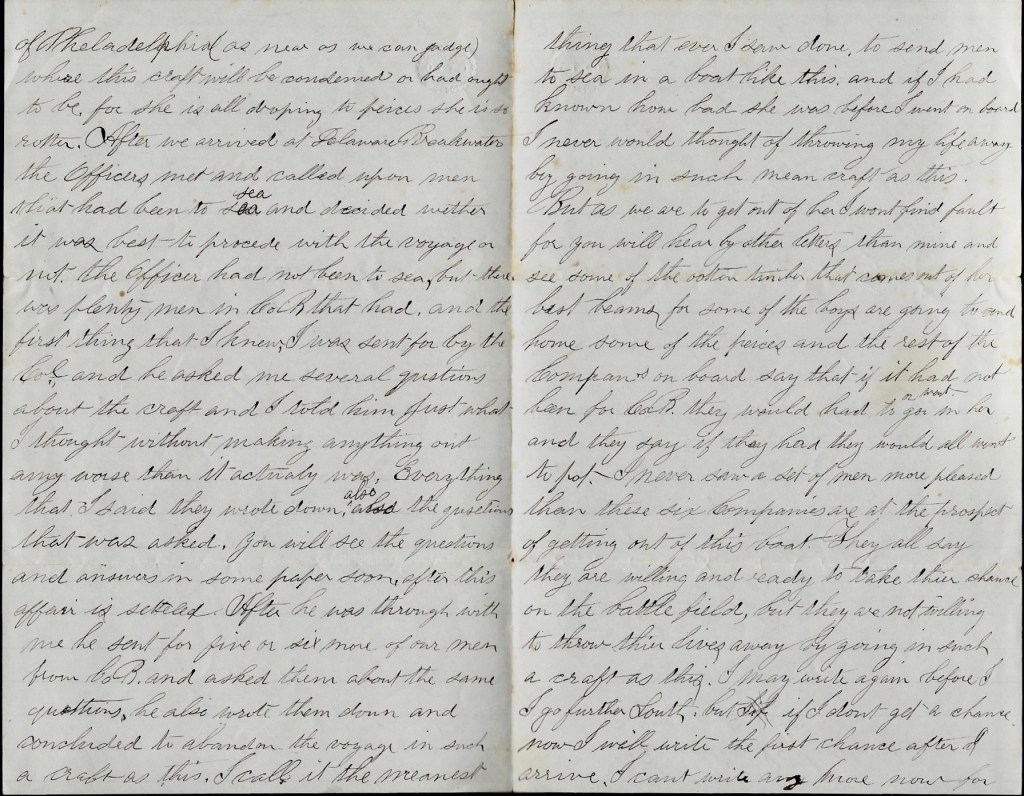 of Pheladelphia (as near as we can judge)
where this craft will be condemed or had ought
to be, for she is all droping to peices she is so
rotten. After we arrived at Delaware Breakwater
the Officers met and called upon men
that had been to sea sea and decided wether
it was best to procede with the voyage or
not. the Officer had not been to sea, but there
was plenty men in Co B that had, and the
first thing that I knew, I was sent for by the
Col. and he asked me several qustions
about the craft and I told him just what
I thought without making anything out
any worse than it actualy was. Everything
that I said they wrote down, also also the qusetions
that was asked. You will see the questions
and answers in some paper soon, after this
affair is settled. After he was through with
me he sent for five or six more of our men
from Co B. and asked them about the same
questions, he also write them down and
concluded to abandon the voyage in such
a craft as this. I call it the meanest
thing that ever I saw done, to send men
to sea in a boat like this. and if I had
known how bad she was before I went on board
I never would thought of throwing my life away
by going in such mean craft as this.
But as we are to get out of her I wont find fault
for you will hear by other letters than mine and
see some of the rotten timber that comes out of her
best beams, for some of the boys are going to send
home some of the peices and the rest of the
Companys on board say that if it had not
been for Co B. they would had to go or went in her
and they say if they had they would all went
to pot. I never saw a set of men more pleased
than these six Companies are at the prospect
of getting out of this boat. They all say
they are willing and ready to take thier chance
on the battle field, but they are not willing
to throw thier lives away by going in such
a craft as this. I may write again before I
I go further South, but if I dont get a chance
now I will write the first chance after I
arrive. I cant write any more now for